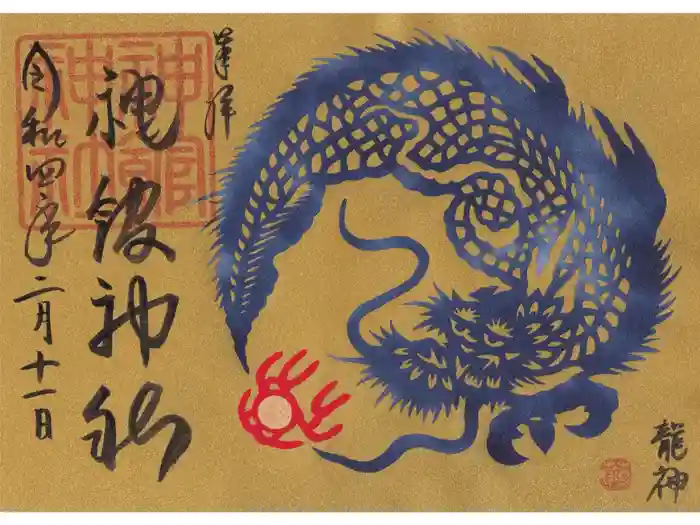 奉拝
神館神社
令和四年二月十一日
龍神